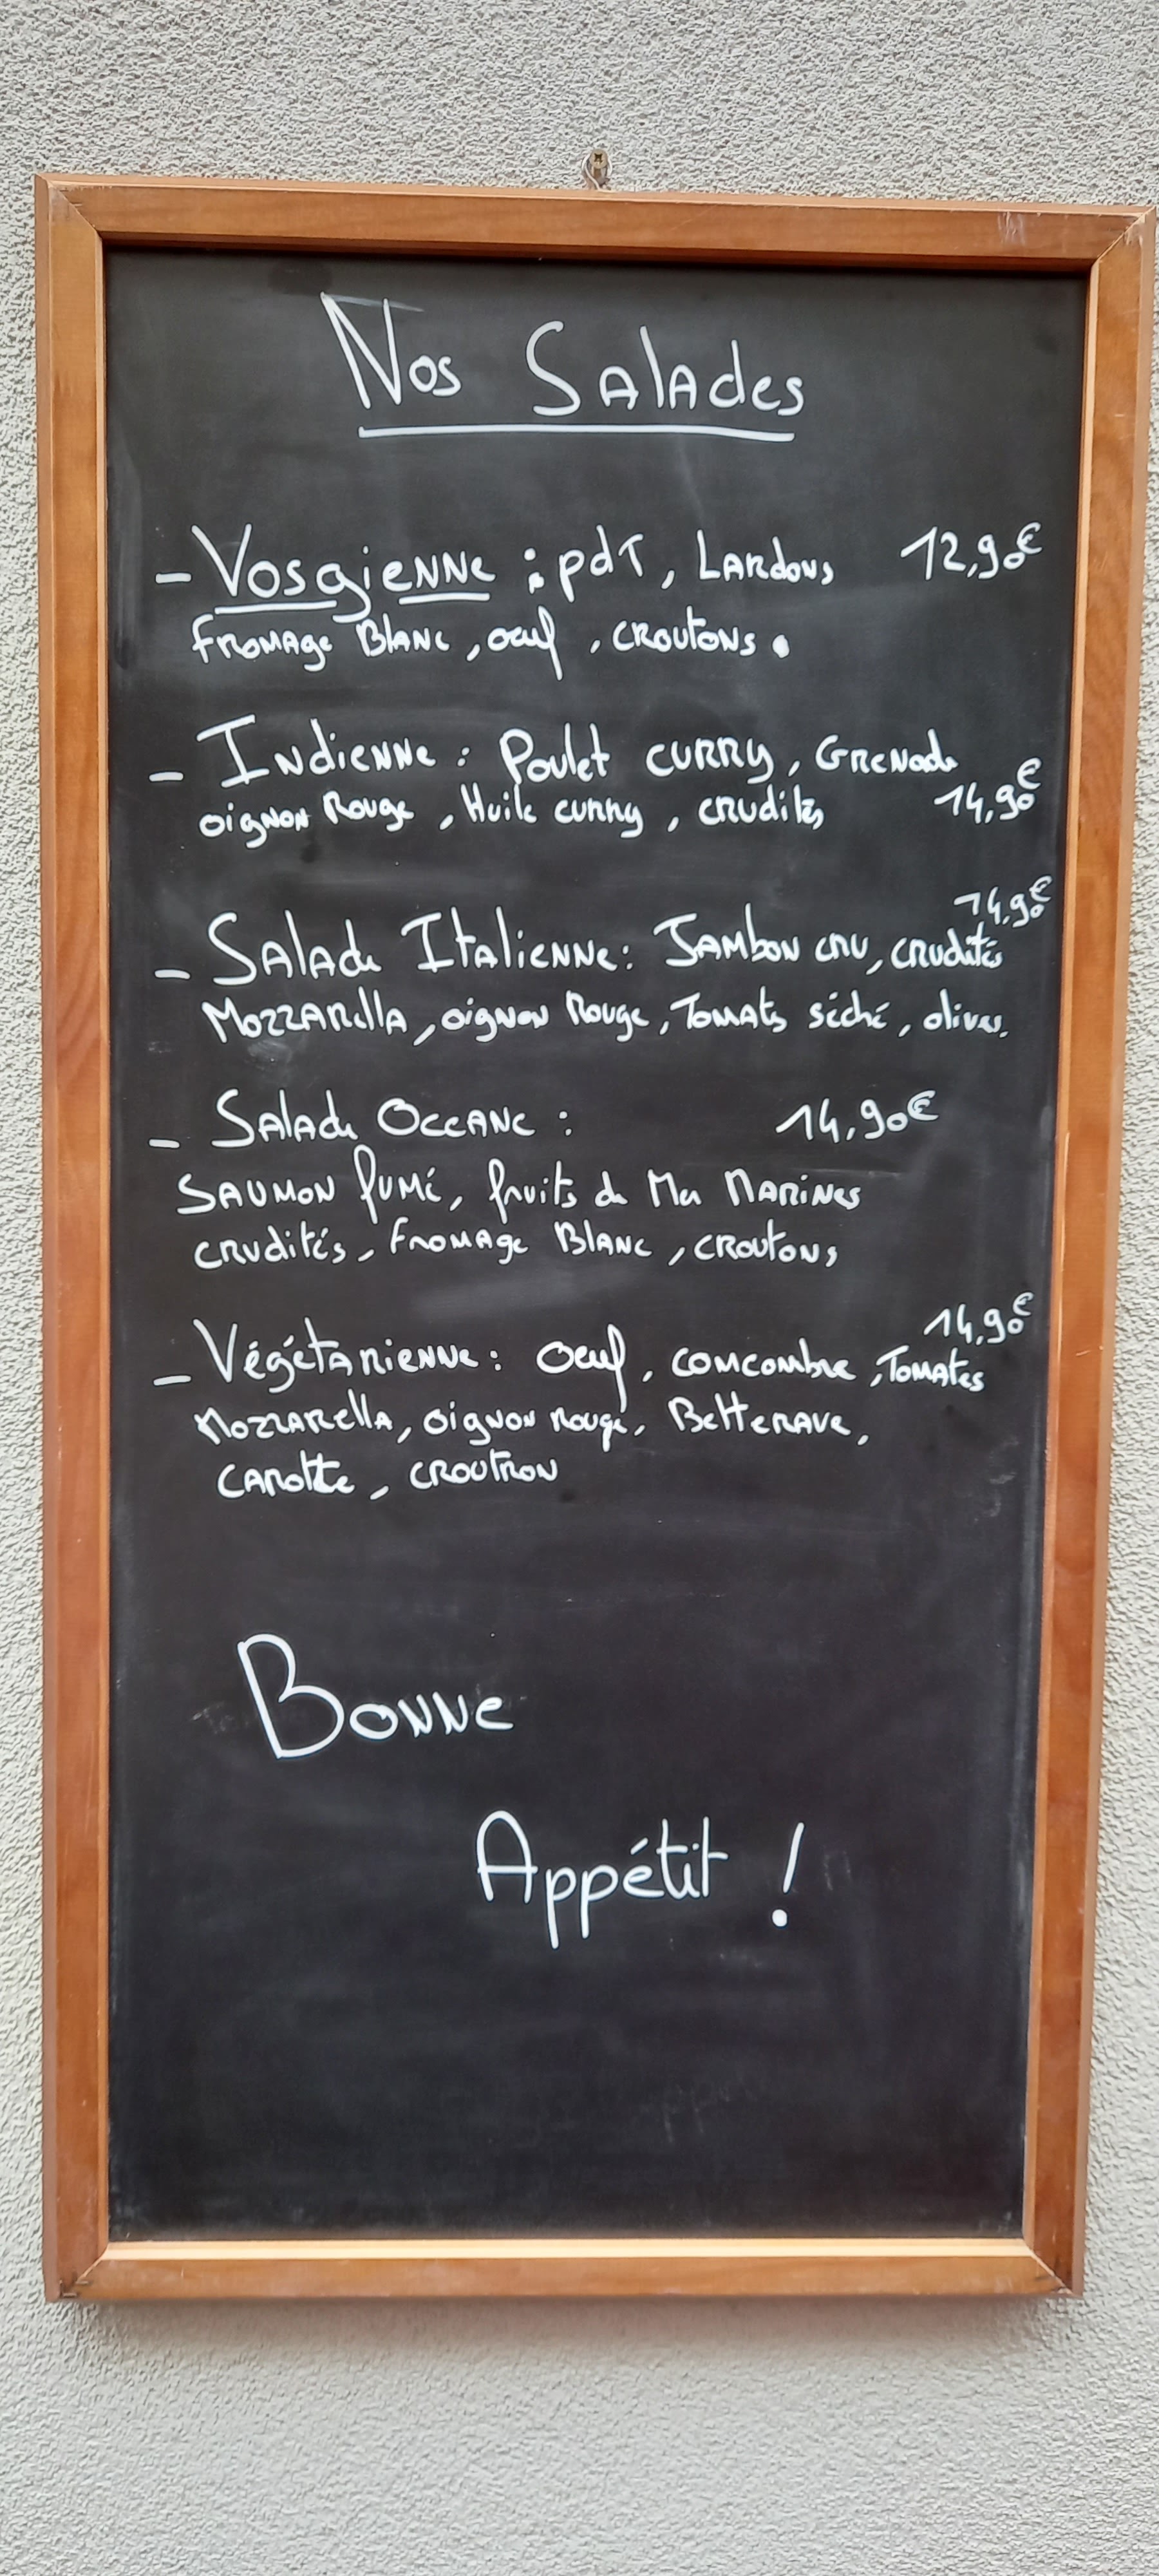 Nos Salades
- Vosgienne : pdt, Lardons 12,90€
fromage Blanc, oeuf, croutons.
- Indienne : Poulet curry, Grenade
oignon Rouge, Huile curry, crudités 14,90€
14,90€
- Salade Italienne : Jambon cru, crudités
Mozzarella, oignon Rouge, Tomates séché, olives.
- Salade Oceane : 14,90€
Saumon fumé, fruits de Mer Marines
crudités, fromage Blanc, croutons
14,90€
- Végétarienne : oeuf, comcombre, Tomates
Mozzarella, oignon rouge, Betterave,
carotte, croutron
Bonne
Appétit !